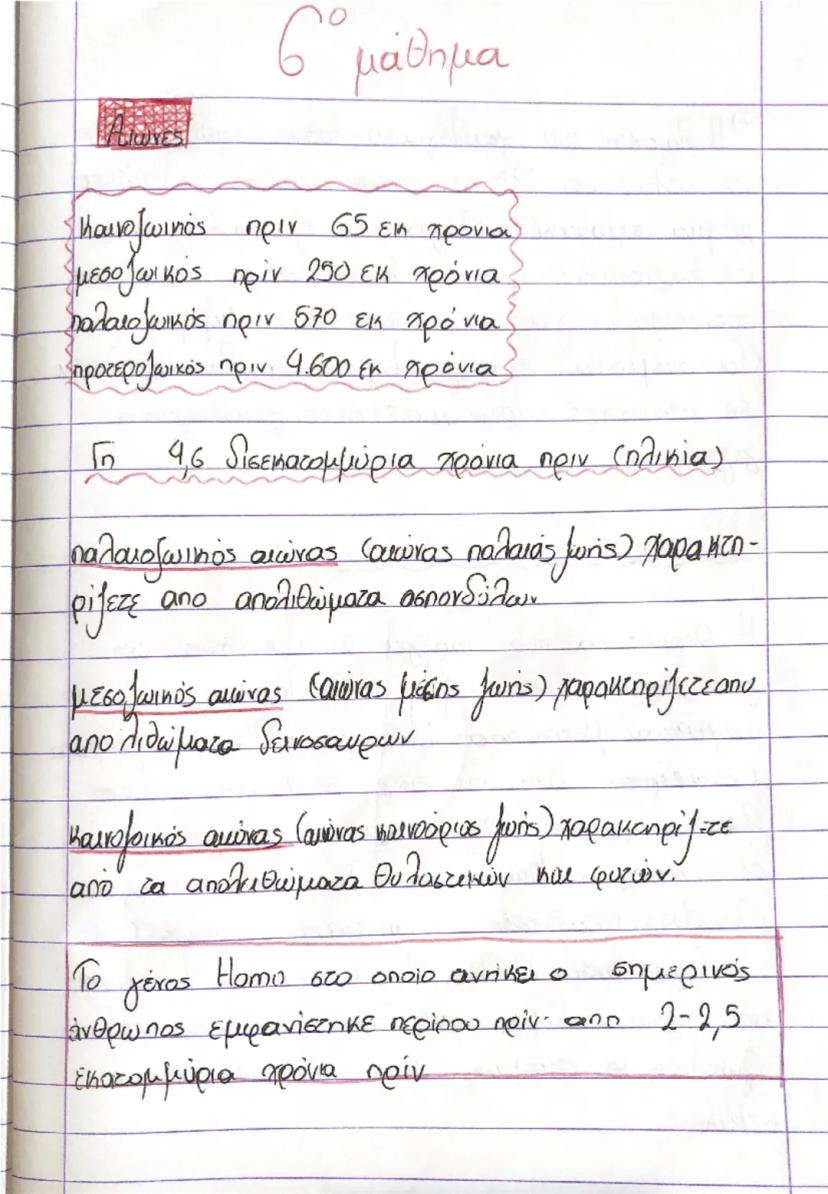 6° μάθημα
Αιώνες
Καινοζωικός πριν 65 εκ χρόνια
μεσοζωικός πρίν 250 εκ χρόνια
παλαιοζωικός πριν 570 εκ χρόνια
προτεροζωικός πριν 4.600 εκ χρόνια
Γη 4,6 δισεκατομμύρια χρόνια πριν (ηλικία)
παλαιοζωικός αιώνας (αιώνας παλαιάς ζωής) χαρακτη-
ρίζετε απο απολιθώματα ασπονδύλων
μεσοζωικός αιώνας (αιώνας μέσης ζωής) χαρακτηρίζετε απο
απολιθώματα δεινοσαυρων
καινοζοικός αιώνας (αιώνας καινούριας ζωής) χαρακτηρίζετε
από τα απολιθώματα θυλαστικών και φυτών.
Το γένος Homo στο οποίο ανήκει ο σημερινός
άνθρωπος εμφανίστηκε περίπου πρίν απο 2-2,5
εκατομμύρια χρόνια πρίν